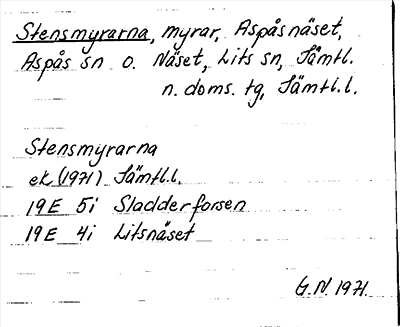 Stensmyrarna, myrar, Aspåsnäset,
Aspås sn o. Näset, Lits sn, Jämtl.
n. doms. tg, Jämtl.l.
Stensmyrarna
ek (1971) Jämtl.l.
19E 5i Sladderforsen
19E 4i Litsnäset
G.N. 1971.